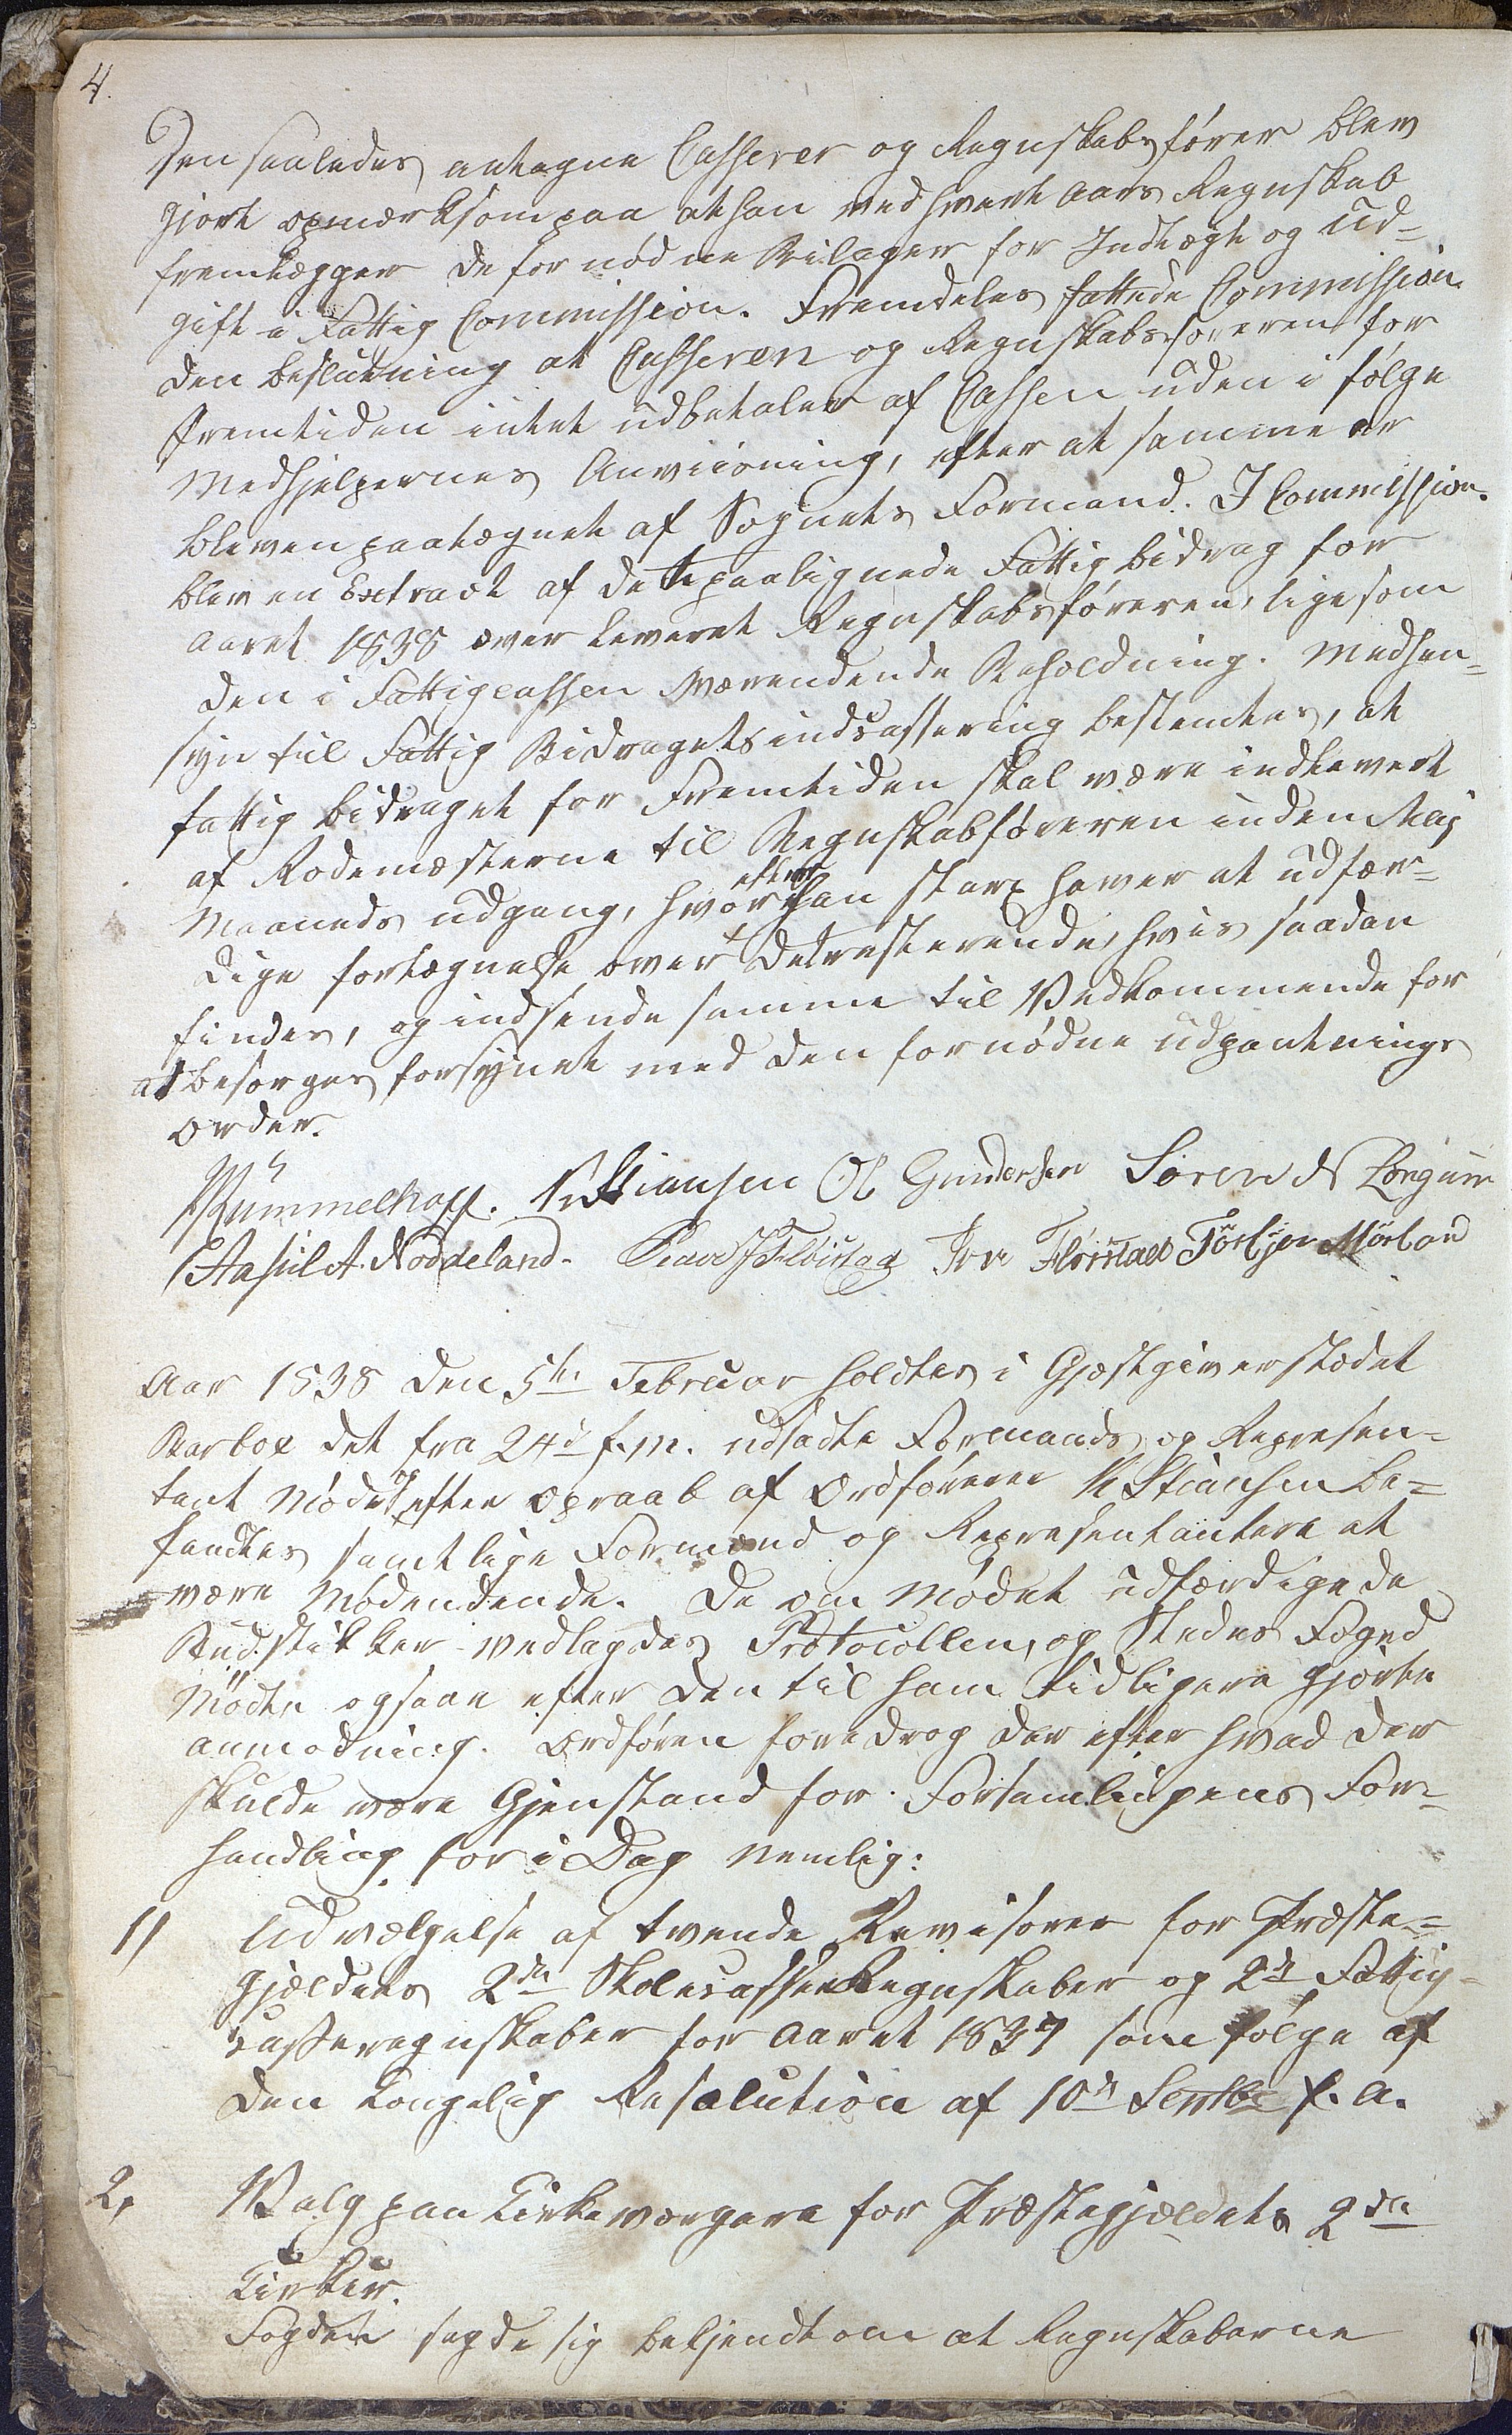 4.
Den saaledes antagne Casserer og Regnskabsfører blev
gjort opmærksom paa at han ved hvert Aars Regnskab
fremlægger de fornødne Bilager for Indtægt og Ud-
gift i Fattig Commission. Fremdeles fattede Commission.
den beslutning at Casseren og Regnskabsføreren for
Fremtiden intet udbetaler af Cassen uden i følge
Medhjelpernes Anviisning, efter at samme er
bleven paategnet af Sognets Formand. I Commission.
blev en Extract af dette paalignede Fattigbidrag for
Aaret 1838 over leveret Regnskabsføreren, ligesom
den i Fattigcassen værendende Beholdning. Medhen-
syn til Fattig Bidragets indcassering bestemtes, at
fattig bidraget for Fremtiden skal være indlevert
af Rodemæsterne til Regnskabsføreren inden Maj
Maaneds udgang, hvor efter han strax haver at udfær-
dige fortegnelse over det resterende, hvis saadan
findes, og indsende samme til Vedkommende for
at besørges forsynet med den fornødne udpantnings
order.
Rummelhoff. N Stiansen Ol Gundersen Søren N Longum
Aasul A. Noddeland. Knud J Fløistad Jon Flöistad Törbjen Mörland
Aar 1838 den 5te Februar holdtes i Gjæstgiverstædet
Barboe det fra 24d f.M. udsadte Formands og Represen-
tant Møde, efter opraab af Ordføreren N Stiansen be-
fandtes samtlige Formænd og Representantere at
være Mødendende. De om Mødet udfærdigede
Budstikker vedlagdes Protocollen, og Stedes Foged
Mødte ogsaae efter den til ham tidligere gjorte
anmodning. Ordføren foredrog der efter hvad der
skulde være Gjenstand for Forsamlingens For-
handling for i Dag nemlig:
1) Udvælgelse af tvende Revisorer for Præste-
Gjældets 2de Skolecasse Regnskaber og 2de Fattig-
Casseregnskaber for Aaret 1837 som følge af
den kongelig Resolution af 10de Septbr f. A.
2, Valg paa Kirkeværgere for Præstegjældets 2de
Kirker.
Fogden sagde sig bekjendt om at Regnskaberne